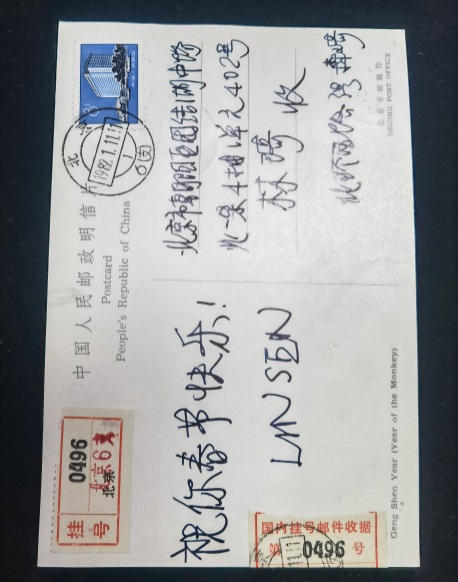 中国人民邮政明信片
Postcard
People's Republic of China
8
北京
1982.1.11.11
6(支)
北京市朝阳区团结湖中路
北一条4栋1单元402号
林
收
北京市邮政局
BEIJING POST OFFICE
祝你春节快乐!
LINSEN
挂号
0496
北京6
北京
国内挂号邮件收据
第 0496 号
Geng Shen Year (Year of the Monkey)